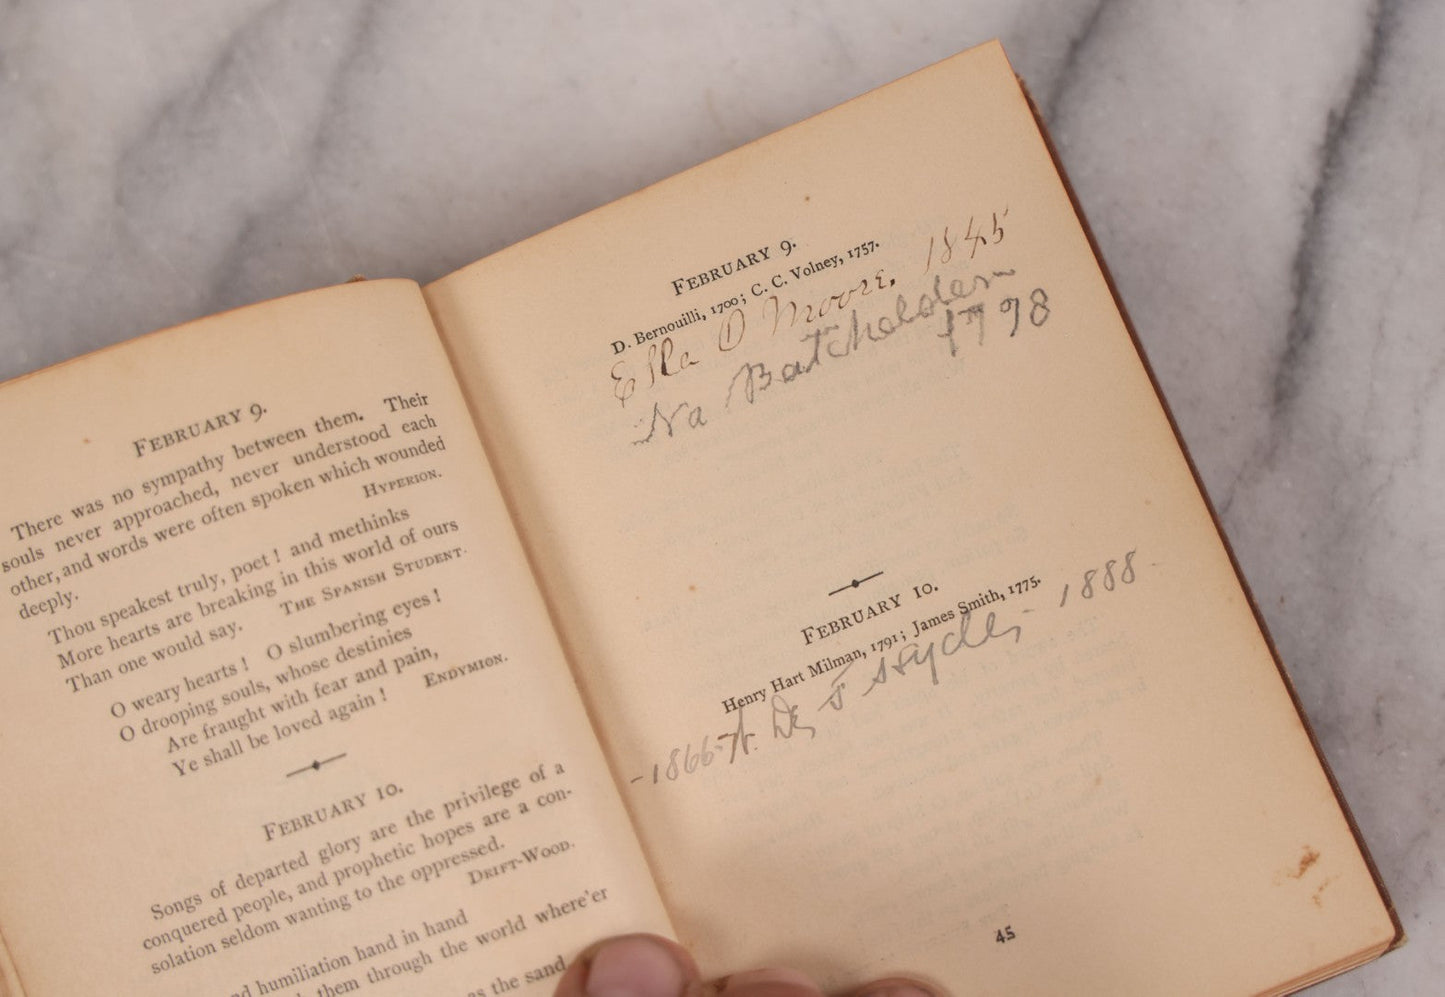 FEBRUARY 9.
There was no sympathy between them. Their
souls never approached, never understood each
other, and words were often spoken which wounded
deeply.
HYPERION.
Thou speakest truly, poet! and methinks
More hearts are breaking in this world of ours
Than one would say.
THE SPANISH STUDENT.
O weary hearts! O slumbering eyes!
O drooping souls, whose destinies
Are fraught with fear and pain,
Ye shall be loved again!
ENDYMION.
FEBRUARY 10.
Songs of departed glory are the privilege of a
conquered people, and prophetic hopes are a con-
solation seldom wanting to the oppressed.
DRIFT-WOOD.
nd humiliation hand in hand
them through the world where'er
as the sand
FEBRUARY 9.
D. Bernouilli, 1700; C. C. Volney, 1757.
Ella D Moore. 1845
Na Batchelder
1798
FEBRUARY 10.
Henry Hart Milman, 1791; James Smith, 1775.
1888
-1866
45